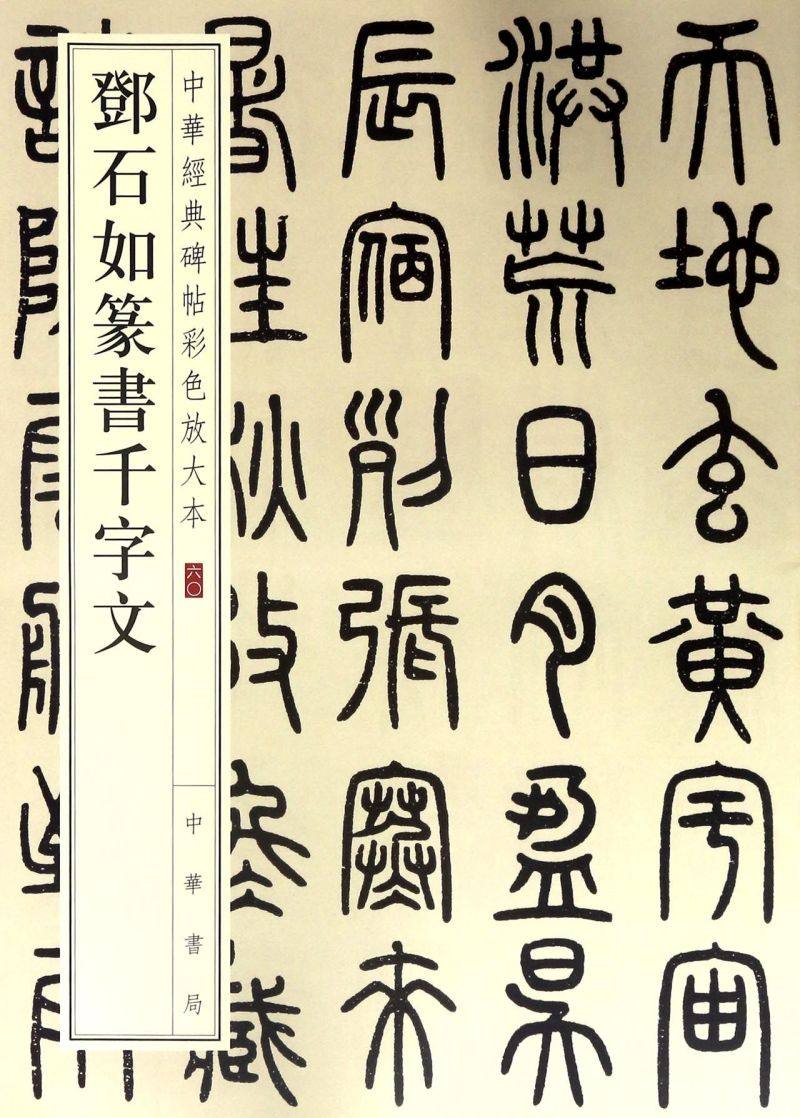 天地玄黃宇宙
洪荒日月盈昃
辰宿列張寒來
中華經典碑帖彩色放大本
六〇
中華書局
鄧石如篆書千字文